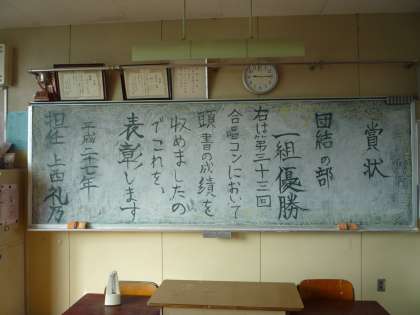 賞状
団結の部
一組優勝
右は第三十三回
合唱コンにおいて
頭書の成績を
収めましたの
でこれを、
表彰します
平成二十七年
担任 上西礼乃